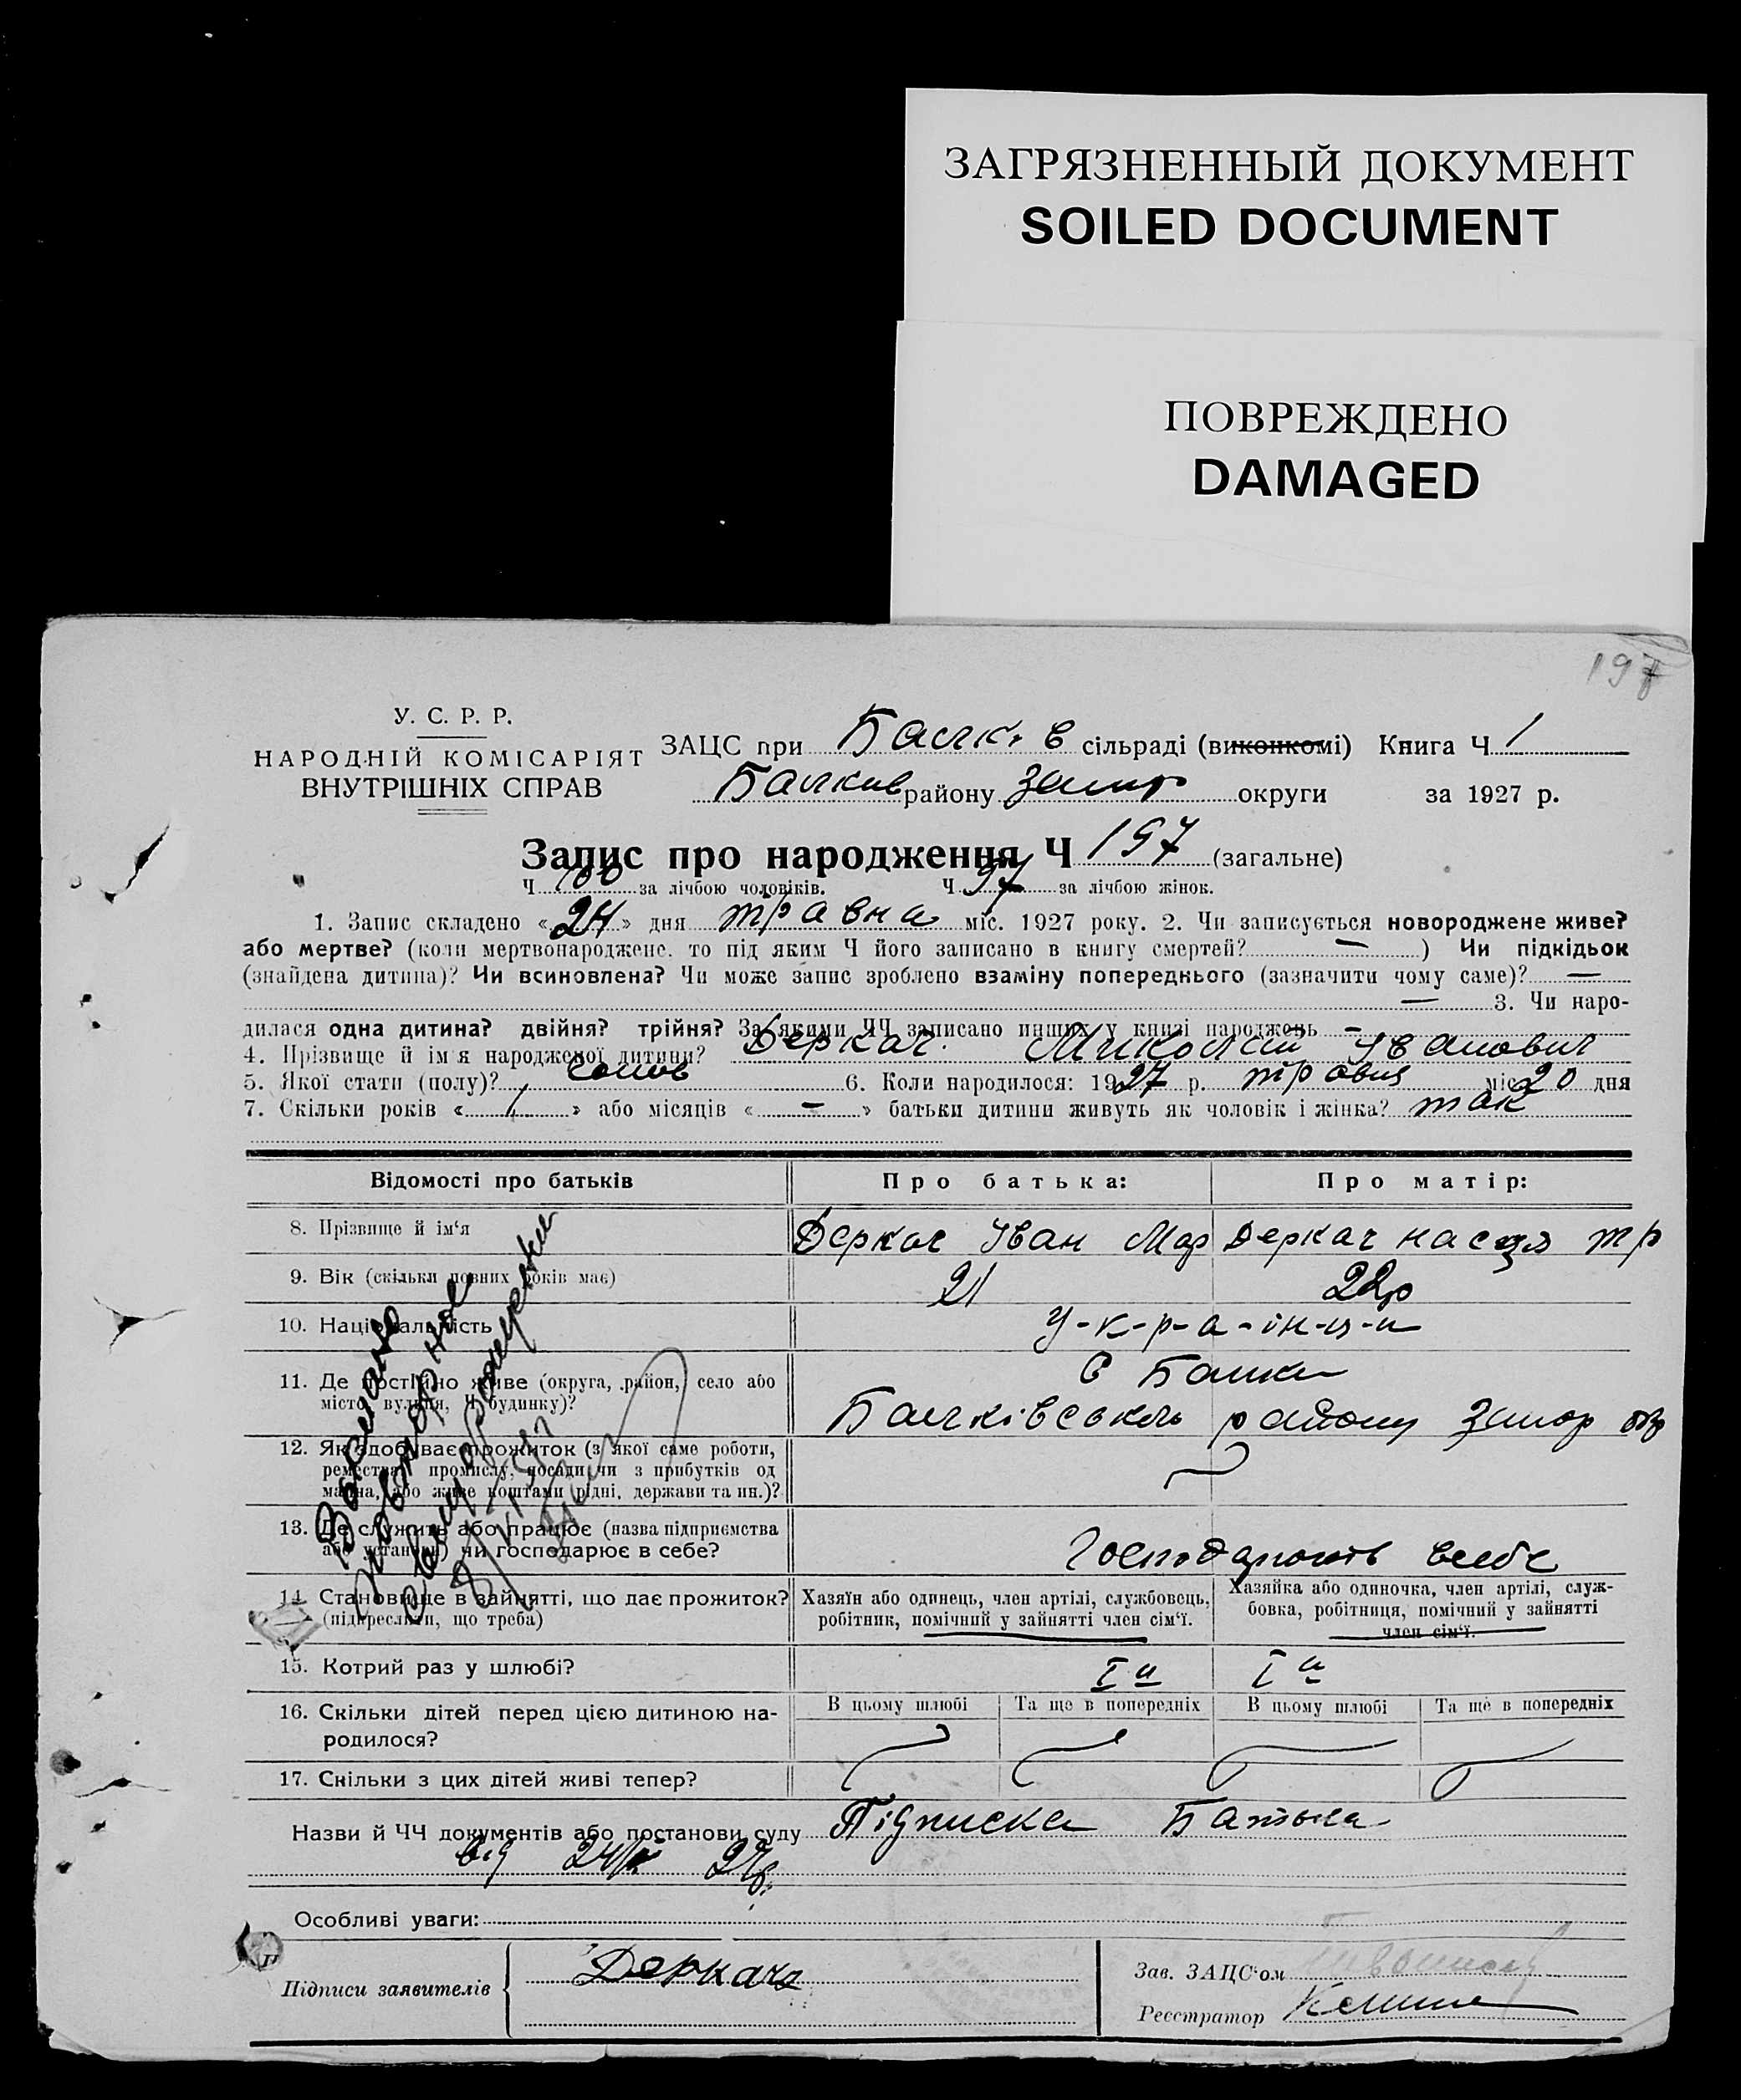 ЗАГРЯЗНЕННЫЙ ДОКУМЕНТ
SOILED DOCUMENT
ПОВРЕЖДЕНО
DAMAGED
197
У. С. Р. Р.
НАРОДНІЙ КОМІСАРІЯТ
ВНУТРІШНІХ СПРАВ
ЗАЦС при Балк. в сільраді (виконкомі) Книга Ч 1
Балков району Запор округи за 1927 р.
Запис про народження Ч 197 (загальне)
Ч 100 за лічбою чоловіків. Ч 97 за лічбою жінок.
1. Запис складено «24» дня травня міс. 1927 року. 2. Чи записується новороджене живе?
або мертве? (коли мертвонароджене, то під яким Ч його записано в книгу смертей? — ) Чи підкідьок
(знайдена дитина)? Чи всиновлена? Чи може запис зроблено взаміну попереднього (зазначити чому саме)? —
— 3. Чи наро-
дилася одна дитина? двійня? трійня? За якими ЧЧ записано инших у книзі народжень —
4. Прізвище й ім'я народженої дитини? Деркач Миколай Іванович
5. Якої стати (полу)? чолов 6. Коли народилося: 1927 р. травня міс 20 дня
7. Скільки років « 1 » або місяців « — » батьки дитини живуть як чоловік і жінка? так
Відомості про батьків Про батька: Про матір:
8. Прізвище й ім'я Деркач Іван Мар Деркач Настя Тр
9. Вік (скільки повних років має) 21 22р
10. Національність У-к-р-а-їн-ц-и
11. Де постійно живе (округа, район, село або
місто, вулиця, Ч будинку)?
с Балки
Балківського району Запор окр
12. Як здобуває прожиток (з якої саме роботи,
ремества, промислу, посади чи з прибутків од
майна, або живе коштами рідні, держави та ин.)?
13. Де служить або працює (назва підприємства
або установи) чи господарює в себе?
Господарюють в себе
14. Становище в зайнятті, що дає прожиток?
(підкреслити, що треба)
Хазяїн або одинець, член артілі, службовець,
робітник, помічний у зайнятті член сім'ї.
Хазяйка або одиночка, член артілі, служ-
бовка, робітниця, помічний у зайнятті
член сім'ї.
15. Котрий раз у шлюбі? І й І й
16. Скільки дітей перед цією дитиною на-
родилося?
В цьому шлюбі Та ще в попередніх В цьому шлюбі Та ще в попередніх
17. Скільки з цих дітей живі тепер?
Выдано
повторное
Назви й ЧЧ документів або постанови суду Підписка Батька
від 24/V 27р.
Особливі уваги:
Підписи заявителів Деркач
Зав. ЗАЦС'ом
Реєстратор